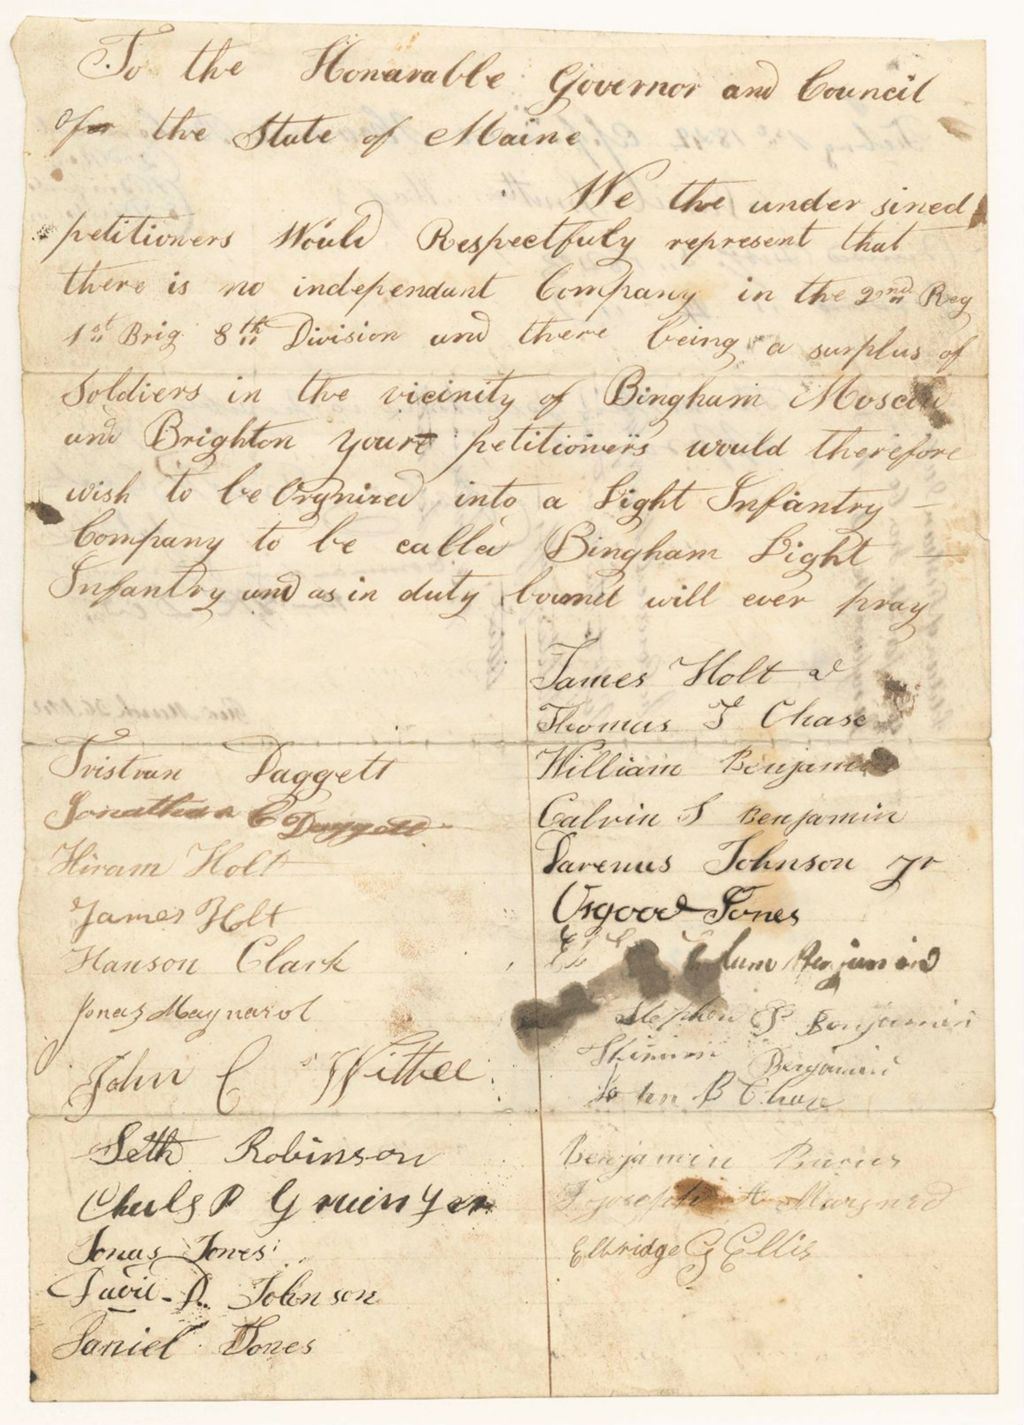 To the Honarable Governor and Council
of the State of Maine
We the under sined
petitioners Would Respectfuly represent that
there is no independant Company in the 2nd Reg
1st Brig 8th Division and there being a surplus of
Soldiers in the vicinity of Bingham Moscow
and Brighton your petitioners would therefore
wish to be Orgnized into a Light Infantry
Company to be called Bingham Light
Infantry and as in duty bound will ever pray
James Holt 2
Thomas F Chase
William Benjamin
Calvin S Benjamin
Larenus Johnson Jr
Osgood Jones
Benjamin
Stephen P Benjamin
Benjamin
John B Chase
Benjamin
Joseph A Maynard
Elbridge G Ellis
Tristran Daggett
Jonathan C Daggett
Hiram Holt
James Holt
Hanson Clark
Jonas Maynard
John C Withee
Seth Robinson
Jonas Jones
David R. Johnson
Daniel Jones